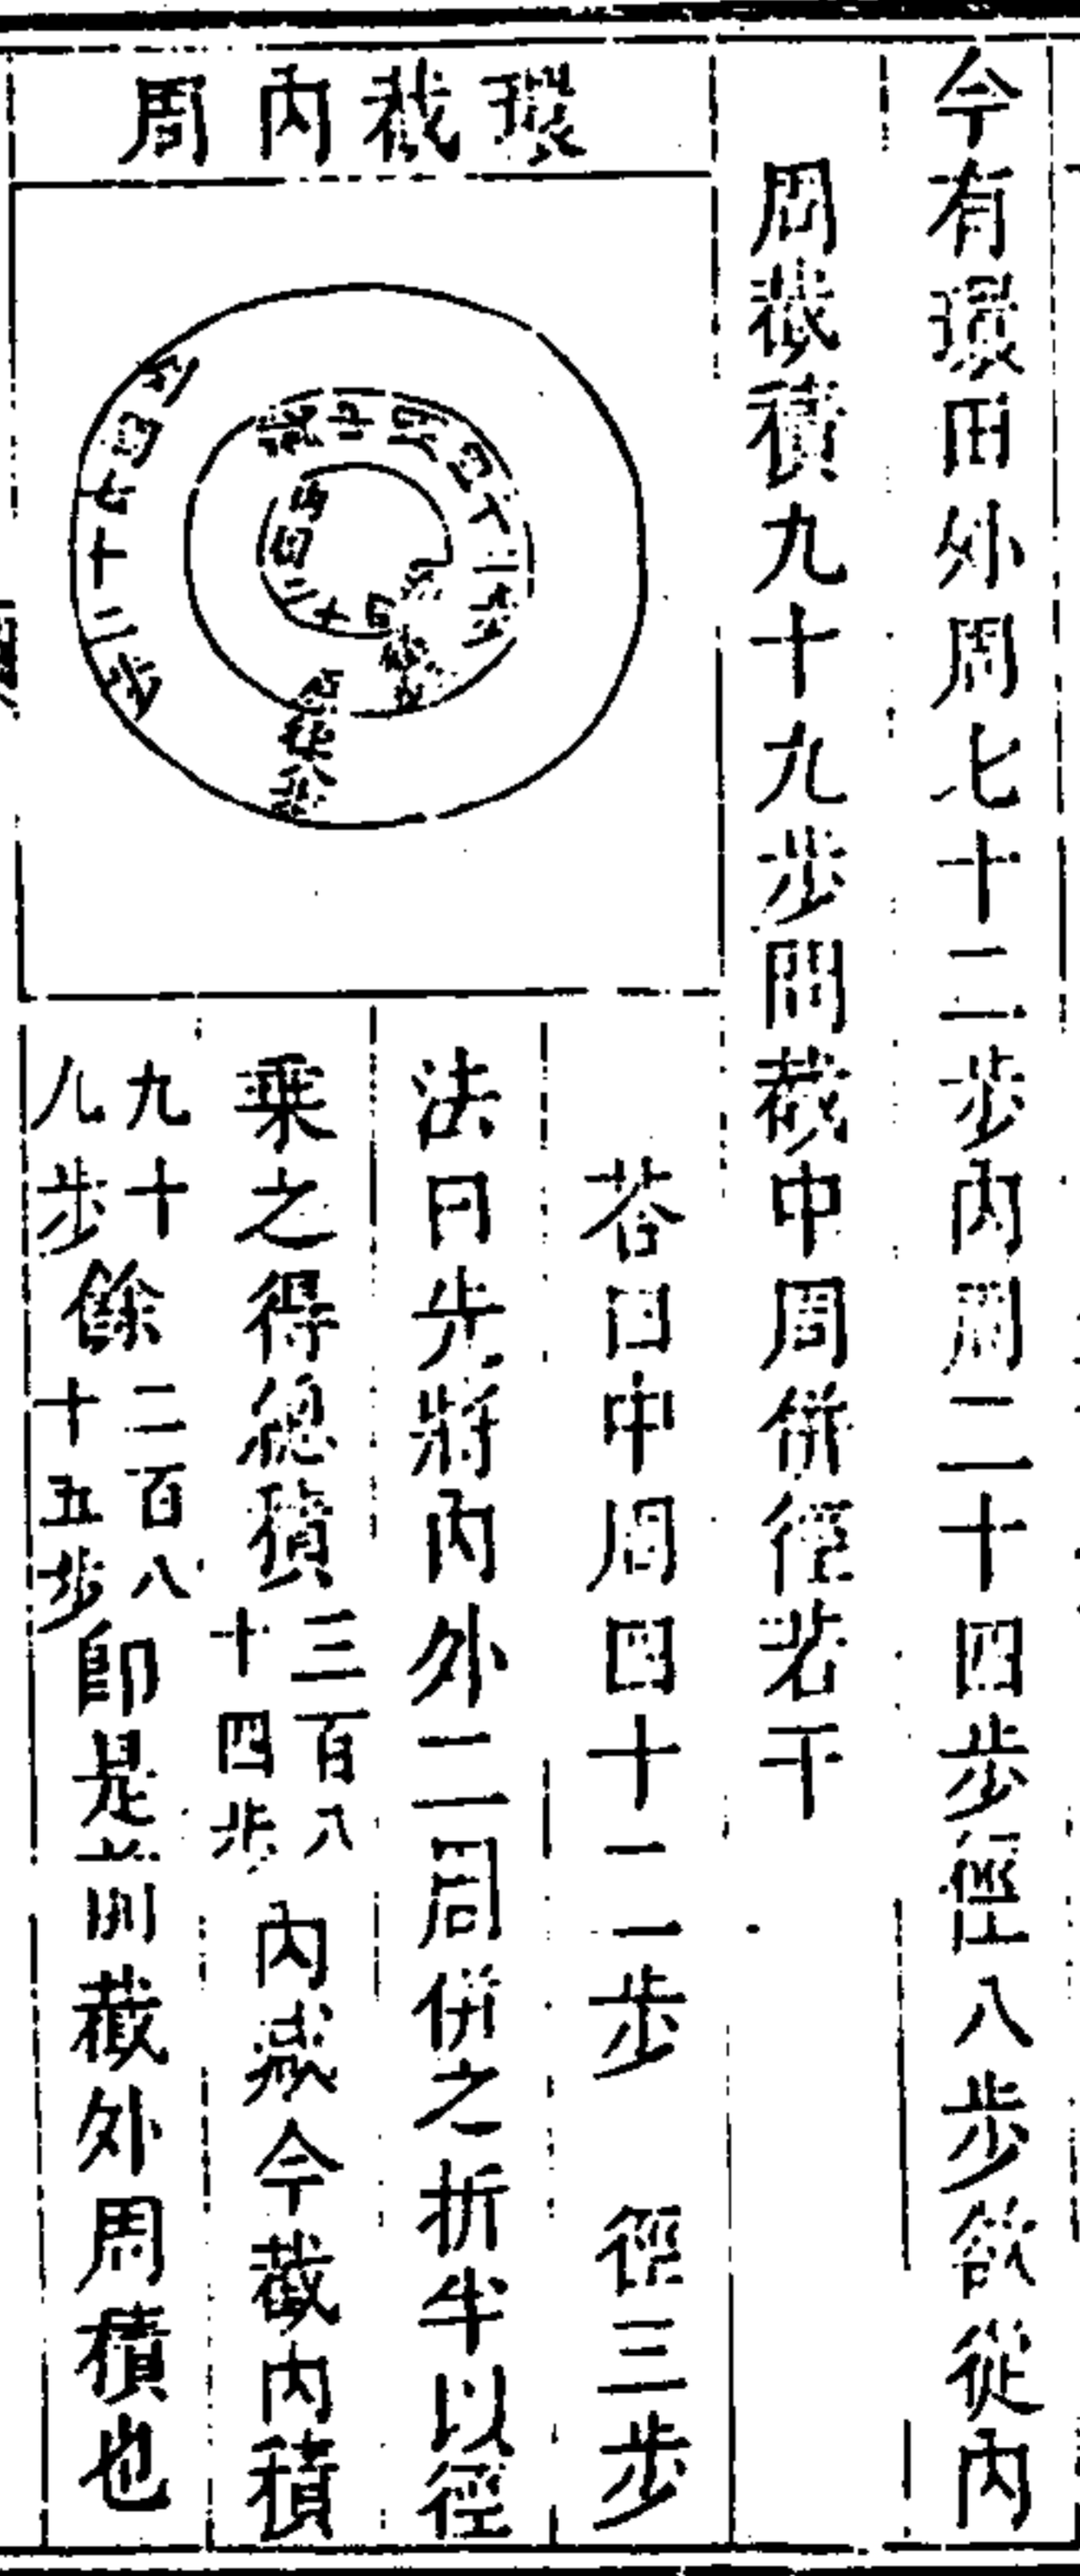 今有環田外周七十二步內周二十四步徑八步欲從內
周截積九十九步問截中周併徑若干
環截內周
外周七十二步
截中周四十二步
內周二十四
答曰中周四十二步　徑三步
法曰先將內外二周併之折半以徑
乗之得總積三百八十四步內減今截內積
九十八步餘二百八十五步即是前截外周積也